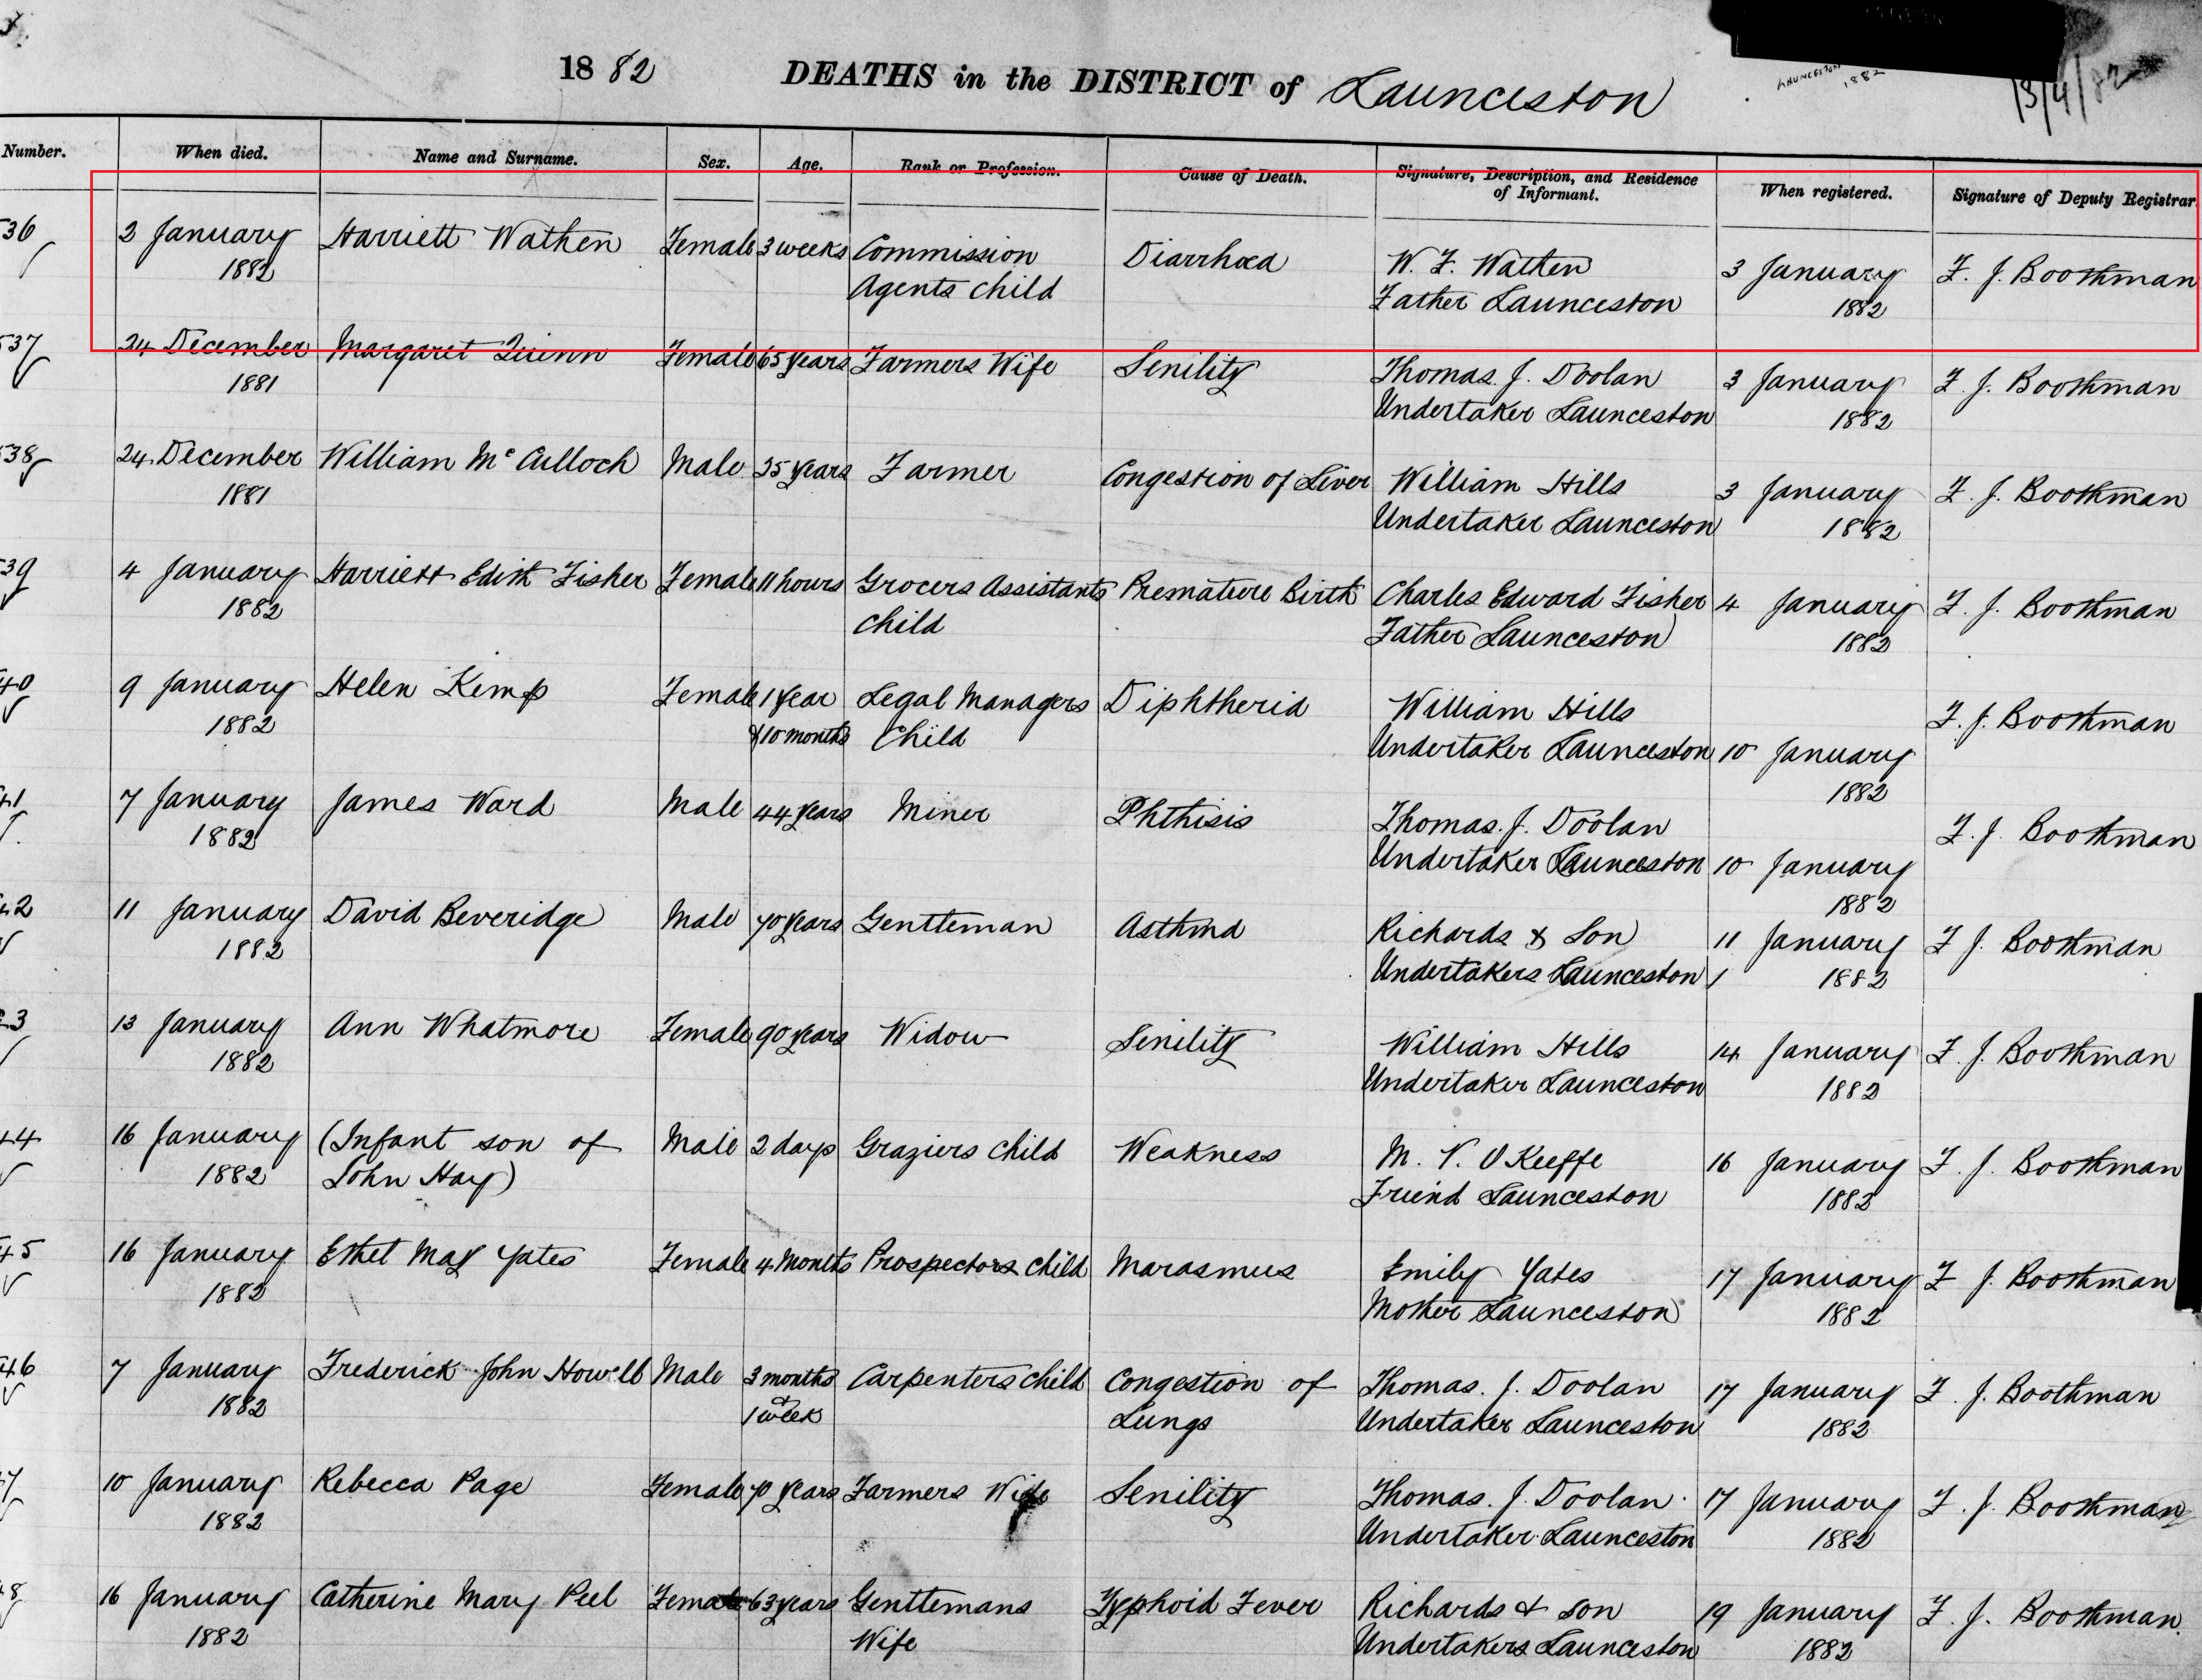 1882 DEATHS in the DISTRICT of Launceston
LAUNCESTON
1882
13/4/82
Number. When died. Name and Surname. Sex. Age. Rank or Profession. Cause of Death. Signature, Description, and Residence of Informant. When registered. Signature of Deputy Registrar
536 2 January Harriett Wathen Female 3 weeks Commission Diarrhœa W. F. Wathen 3 January F. J. Boothman
1882 Agents child Father Launceston 1882
537 24 December Margaret Quinn Female 65 years Farmers Wife Senility Thomas. J. Doolan 3 January F. J. Boothman
1881 Undertaker Launceston 1882
538 24 December William Mc Culloch Male 35 years Farmer Congestion of Liver William Hills 3 January F. J. Boothman
1881 Undertaker Launceston 1882
539 4 January Harriett Edith Fisher Female 11 hours Grocers Assistants Premature Birth Charles Edward Fisher 4 January F. J. Boothman
1882 child Father Launceston 1882
40 9 January Helen Kemp Female 1 year Legal Managers Diphtheria William Hills F. J. Boothman
1882 & 10 months Child Undertaker Launceston 10 January
1882
41 7 January James Ward Male 44 years Miner Phthisis Thomas. J. Doolan F. J. Boothman
1882 Undertaker Launceston 10 January
1882
42 11 January David Beveridge Male 70 years Gentleman Asthma Richards & Son 11 January F J. Boothman
1882 Undertakers Launceston 1882
43 13 January Ann Whatmore Female 90 years Widow Senility William Hills 14 January F. J. Boothman
1882 Undertaker Launceston 1882
44 16 January (Infant son of Male 2 days Graziers child Weakness M. V. O Keeffe 16 January F. J. Boothman
1882 John Hay) Friend Launceston 1882
45 16 January Ethel May Yates Female 4 Months Prospectors child Marasmus Emily Yates 17 January F J. Boothman
1882 Mother Launceston 1882
46 7 January Frederick John Howell Male 3 months Carpenters child Congestion of Thomas. J. Doolan 17 January F. J. Boothman
1882 & 1 week Lungs Undertaker Launceston 1882
47 10 January Rebecca Page Female 70 years Farmers Wife Senility Thomas. J. Doolan 17 January F. J. Boothman
1882 Undertaker Launceston 1882
48 16 January Catherine Mary Peel Female 63 years Gentlemans Typhoid Fever Richards & Son 19 January F. J. Boothman.
1882 Wife Undertakers Launceston 1882